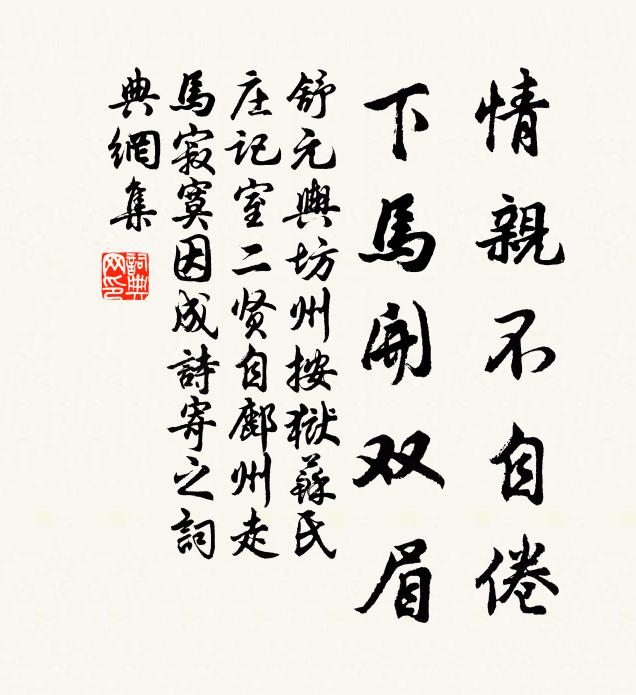 情親不自倦
下馬開双眉
舒元輿坊州按獄蘇氏
庄记室二贤自鄜州走
馬寂寞因成詩寄之詞
典網集
詞典
网印